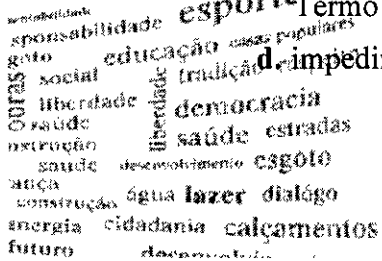 sponsabilidade esporte Termo
educação casas populares
social tradição d. impedi
liberdade liberdade democracia
saúde saúde estradas
saude desenvolvimento esgoto
construção água lazer dialógo
energia cidadania calçamentos
futuro